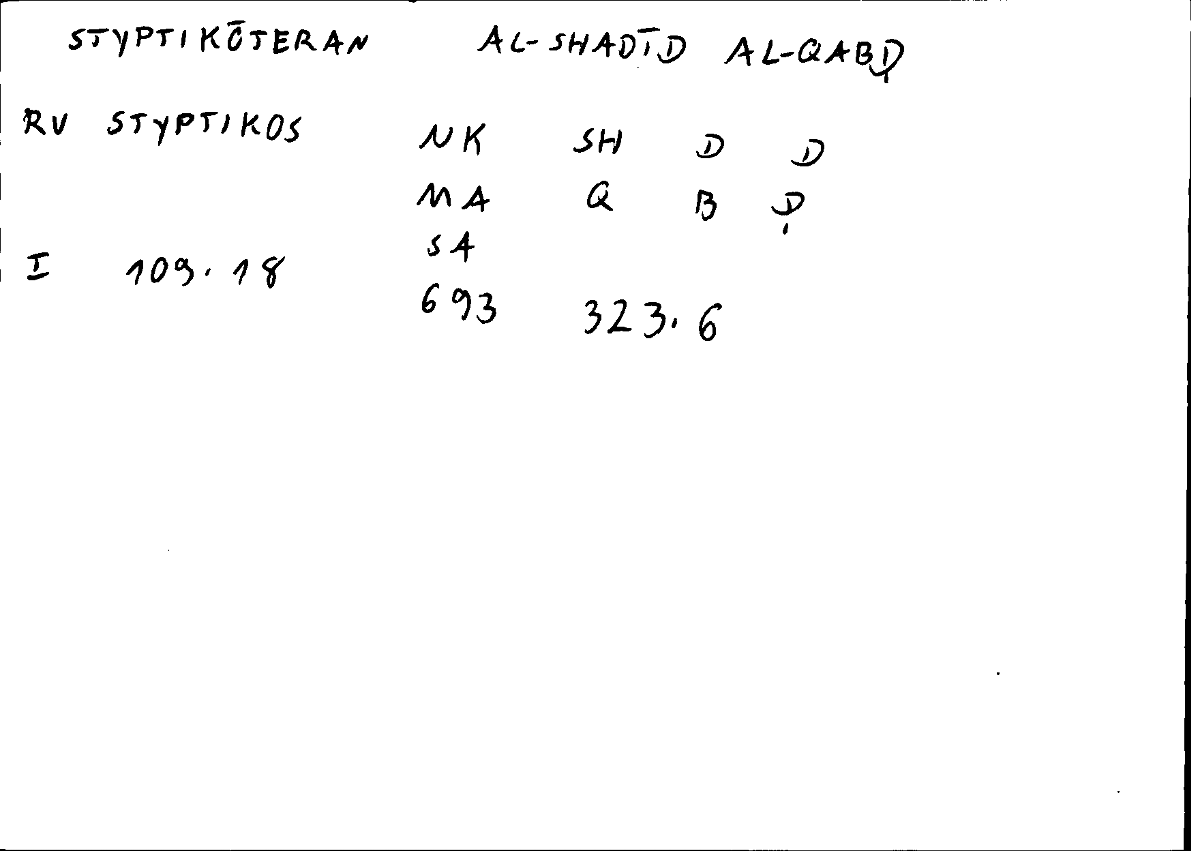 STYPTIKŌTERAN AL-SHADĪD AL-QABḌ
RV STYPTIKOS NK SH D D
MA Q B Ḍ
SA
I 109.18
693 323.6